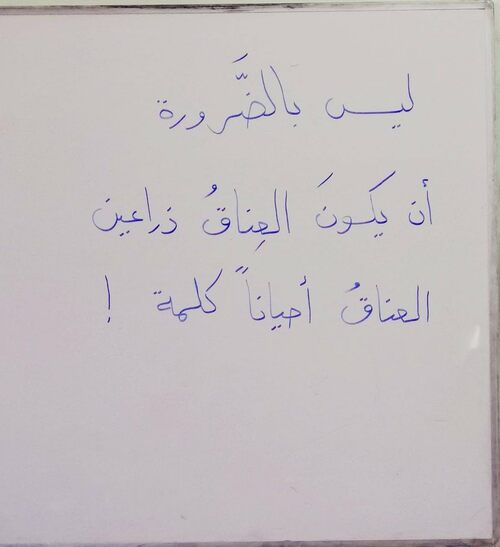 ليس بالضَّرورة
أن يكونَ العِناقُ ذراعين
العناقُ أحياناً كلمة !